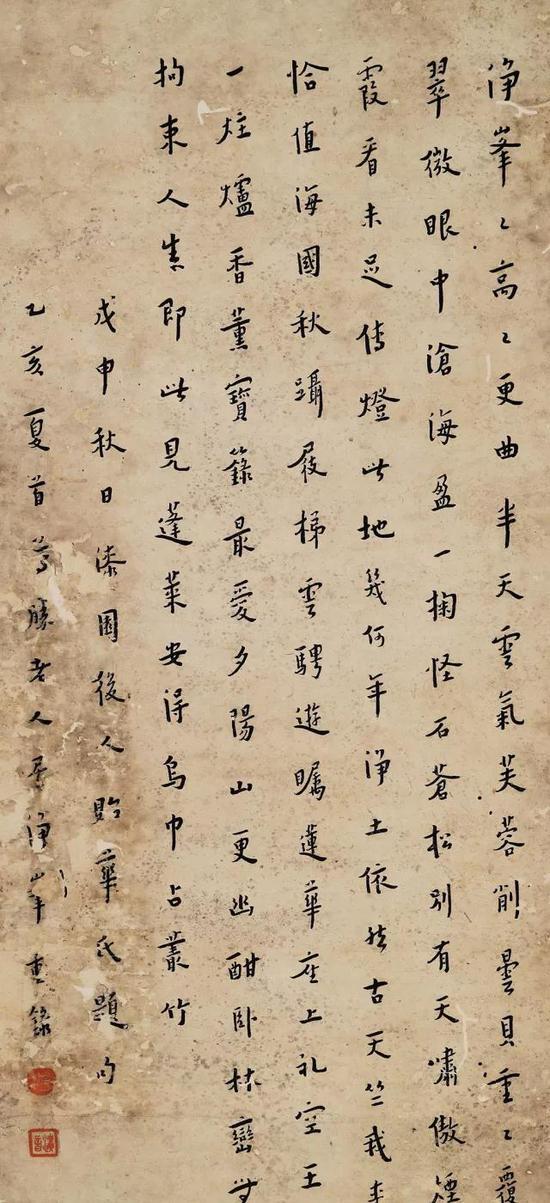 净峯〻高〻更曲半天雲氣芙蓉削曇貝重〻覆
翠微眼中滄海盈一掬怪石蒼松別有天嘯傲煙
霞看未足傳燈此地幾何年淨土依然古天竺我来
恰值海國秋躡屐梯雲騁遊矚蓮華座上礼空王
一炷爐香薰寶籙最愛夕陽山更幽酣卧林巒無
拘束人生即此見蓬萊安得烏巾占叢竹
戊申秋日漆園後人貽華氏題句
乙亥夏首尊勝老人居淨峯重錄